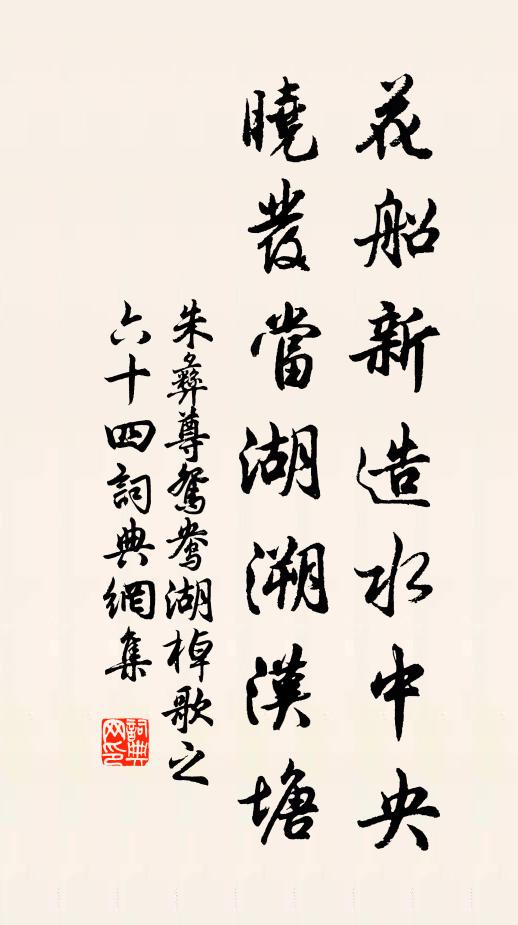 花船新造水中央
曉發當湖溯漢塘
朱彝尊鴛鴦湖棹歌之
六十四詞典網集
詞典網印